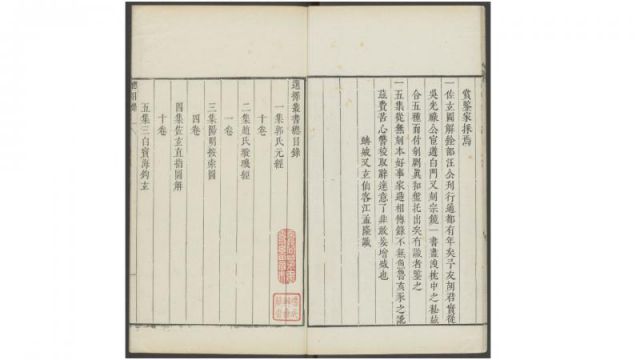 賞鑒家採焉
一佐玄圖解餘部汪公刊行通都有年矣予友胡君賓從
吳光祿公宦遊白門又刻宗鏡一書盡洩枕中之私茲
合五種而付剞劂真和盤托出矣有識者鑒之
一五集從無刻本好事家遞相傳錄不無魚魯亥豕之訛
茲費苦心讐校取辭達意了非敢妄增減也
又玄仙客江孟隆識
選擇叢書總目錄
一集郭氏元經
十卷
二集趙氏璇璣經
一卷
三集陽明按索圖
四卷
四集佐玄直指圖解
十卷
五集三白寶海鈎玄
總目錄